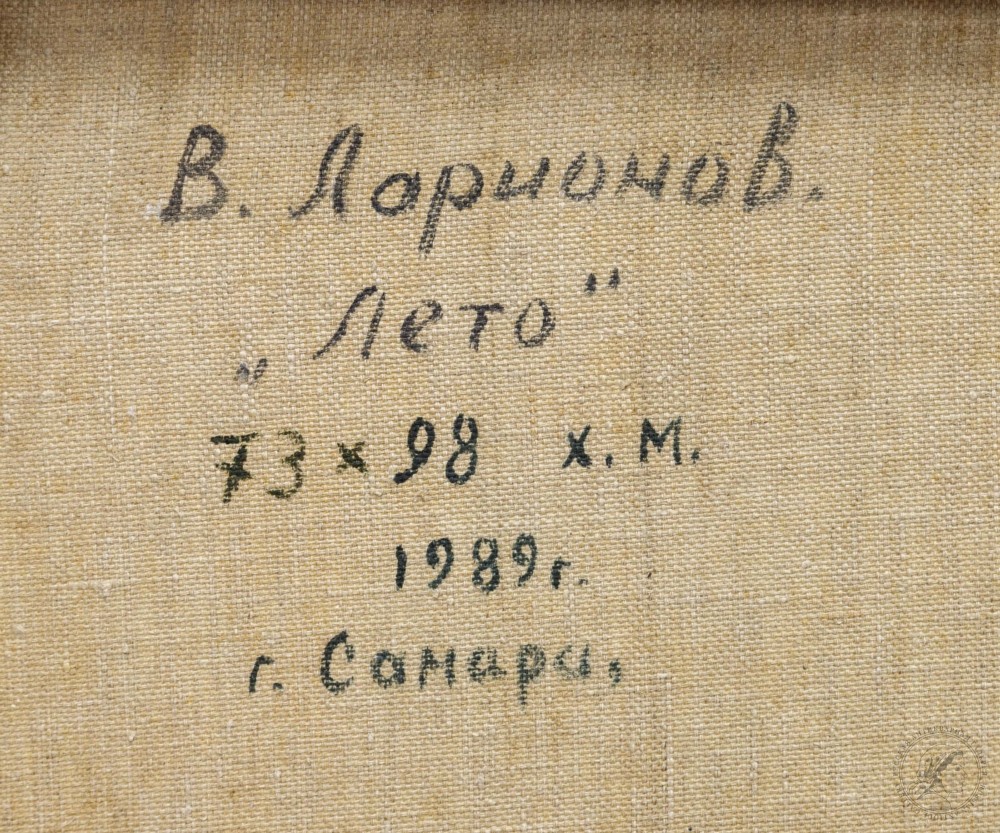 В. Ларионов.
„Лето"
73 × 98 х. м.
1989 г.
г. Самара.